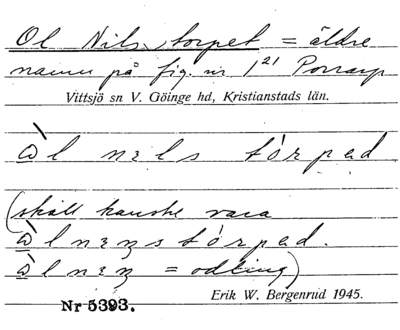 Ol Nils torpet = äldre
namn på fig. nr 1²¹ Porrarp
Vittsjö sn V. Göinge hd, Kristianstads län.
ὼl nɛls tòrpad
(skall kanske vara
torpad.
= odling)
Erik W. Bergenrud 1945.
Nr 5393.